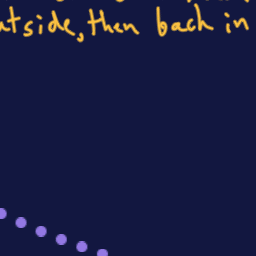 outside, then back in